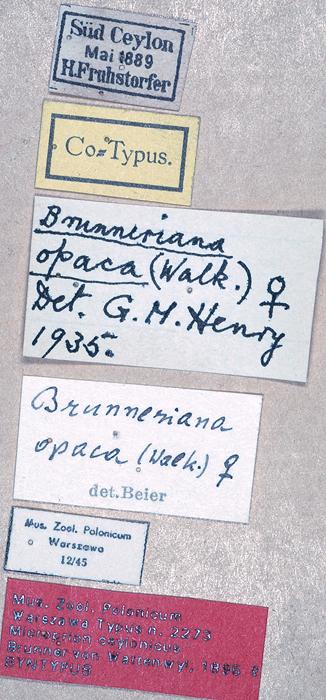 Süd Ceylon
Mai 1889
H.Fruhstorfer
Co-Typus.
Brunneriana
opaca (Walk.) ♀
Det. G. M. Henry
1935.
Brunneriana
opaca (Walk.) ♀
det.Beier
Mus. Zool. Polonicum
Warszawa
12/45
Mus. Zool. Polonicum
Warszawa Typus n. 2273
Micragrion ceylonicus
Brunner von Wattenwyl, 1895 ♀
SYNTYPUS